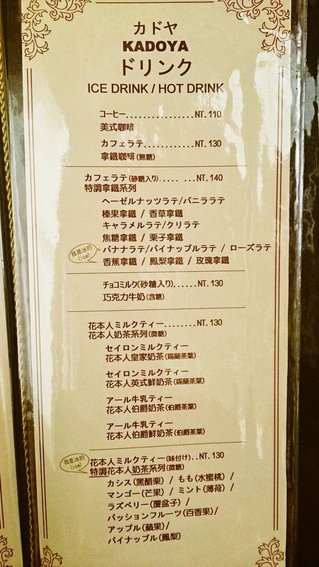 カドヤ
KADOYA
ドリンク
ICE DRINK / HOT DRINK
コーヒー..............NT. 110
美式咖啡
カフェラテ............NT. 130
拿鐵咖啡(無糖)
カフェラテ(砂糖入り)..... ....NT. 140
特調拿鐵系列
ヘーゼルナッツラテ/バニララテ
榛果拿鐵 / 香草拿鐵
キャラメルラテ/クリラテ
焦糖拿鐵 / 栗子拿鐵
バナナラテ/パイナップルラテ / ローズラテ
香蕉拿鐵 / 鳳梨拿鐵 / 玫瑰拿鐵
(ice)
チョコミルク(砂糖入り).......NT. 130
巧克力牛奶(含糖)
花本人ミルクティー........NT. 130
花本人奶茶系列(微糖)
セイロンミルクティー
花本人皇家奶茶(錫蘭茶葉)
セイロンミルクティー
花本人英式鮮奶茶(錫蘭茶葉)
アール牛乳ティー
花本人伯爵奶茶(伯爵茶葉)
アール牛乳ティー
花本人伯爵鮮奶茶(伯爵茶葉)
(ice)
花本人ミルクティー(味付け)..NT. 130
特調花本人奶茶系列(微糖)
カシス(黑醋栗) / もも(水蜜桃) /
マンゴー(芒果) / ミント(薄荷) /
ラズベリー(覆盆子) /
パッションフルーツ(百香果) /
アップル(蘋果)/
パイナップル(鳳梨)